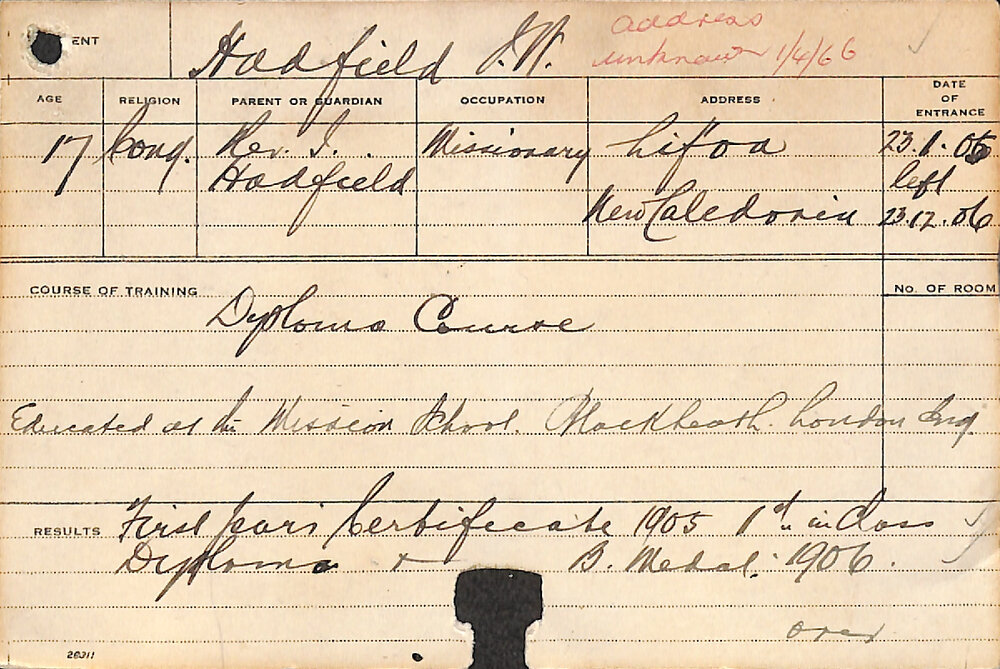 ENT
Hadfield J.W.
address
unknown 1/4/66
AGE RELIGION PARENT OR GUARDIAN OCCUPATION ADDRESS DATE OF ENTRANCE
17 Cong. Rev. J. Missionary Lifoa 23.1.05
Hadfield left
New Caledonia 23.12.06
COURSE OF TRAINING No. OF ROOM
Diploma Course
Educated at the Mission School. Blackheath. London Eng.
RESULTS First Years Certificate 1905 1st in Class
Diploma + B. Medal. 1906.
over
26311